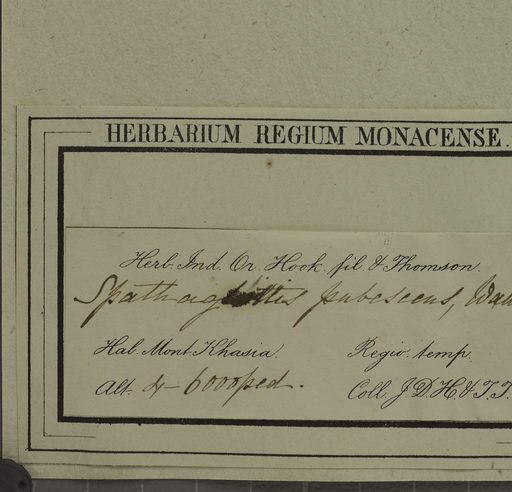 HERBARIUM REGIUM MONACENSE.
Herb. Ind. Or. Hook. fil. & Thomson.
Spathoglottis pubescens,
Hab. Mont. Khasia. Regio temp.
Alt. 4-6000 ped. Coll. J.D.H. & T.T.